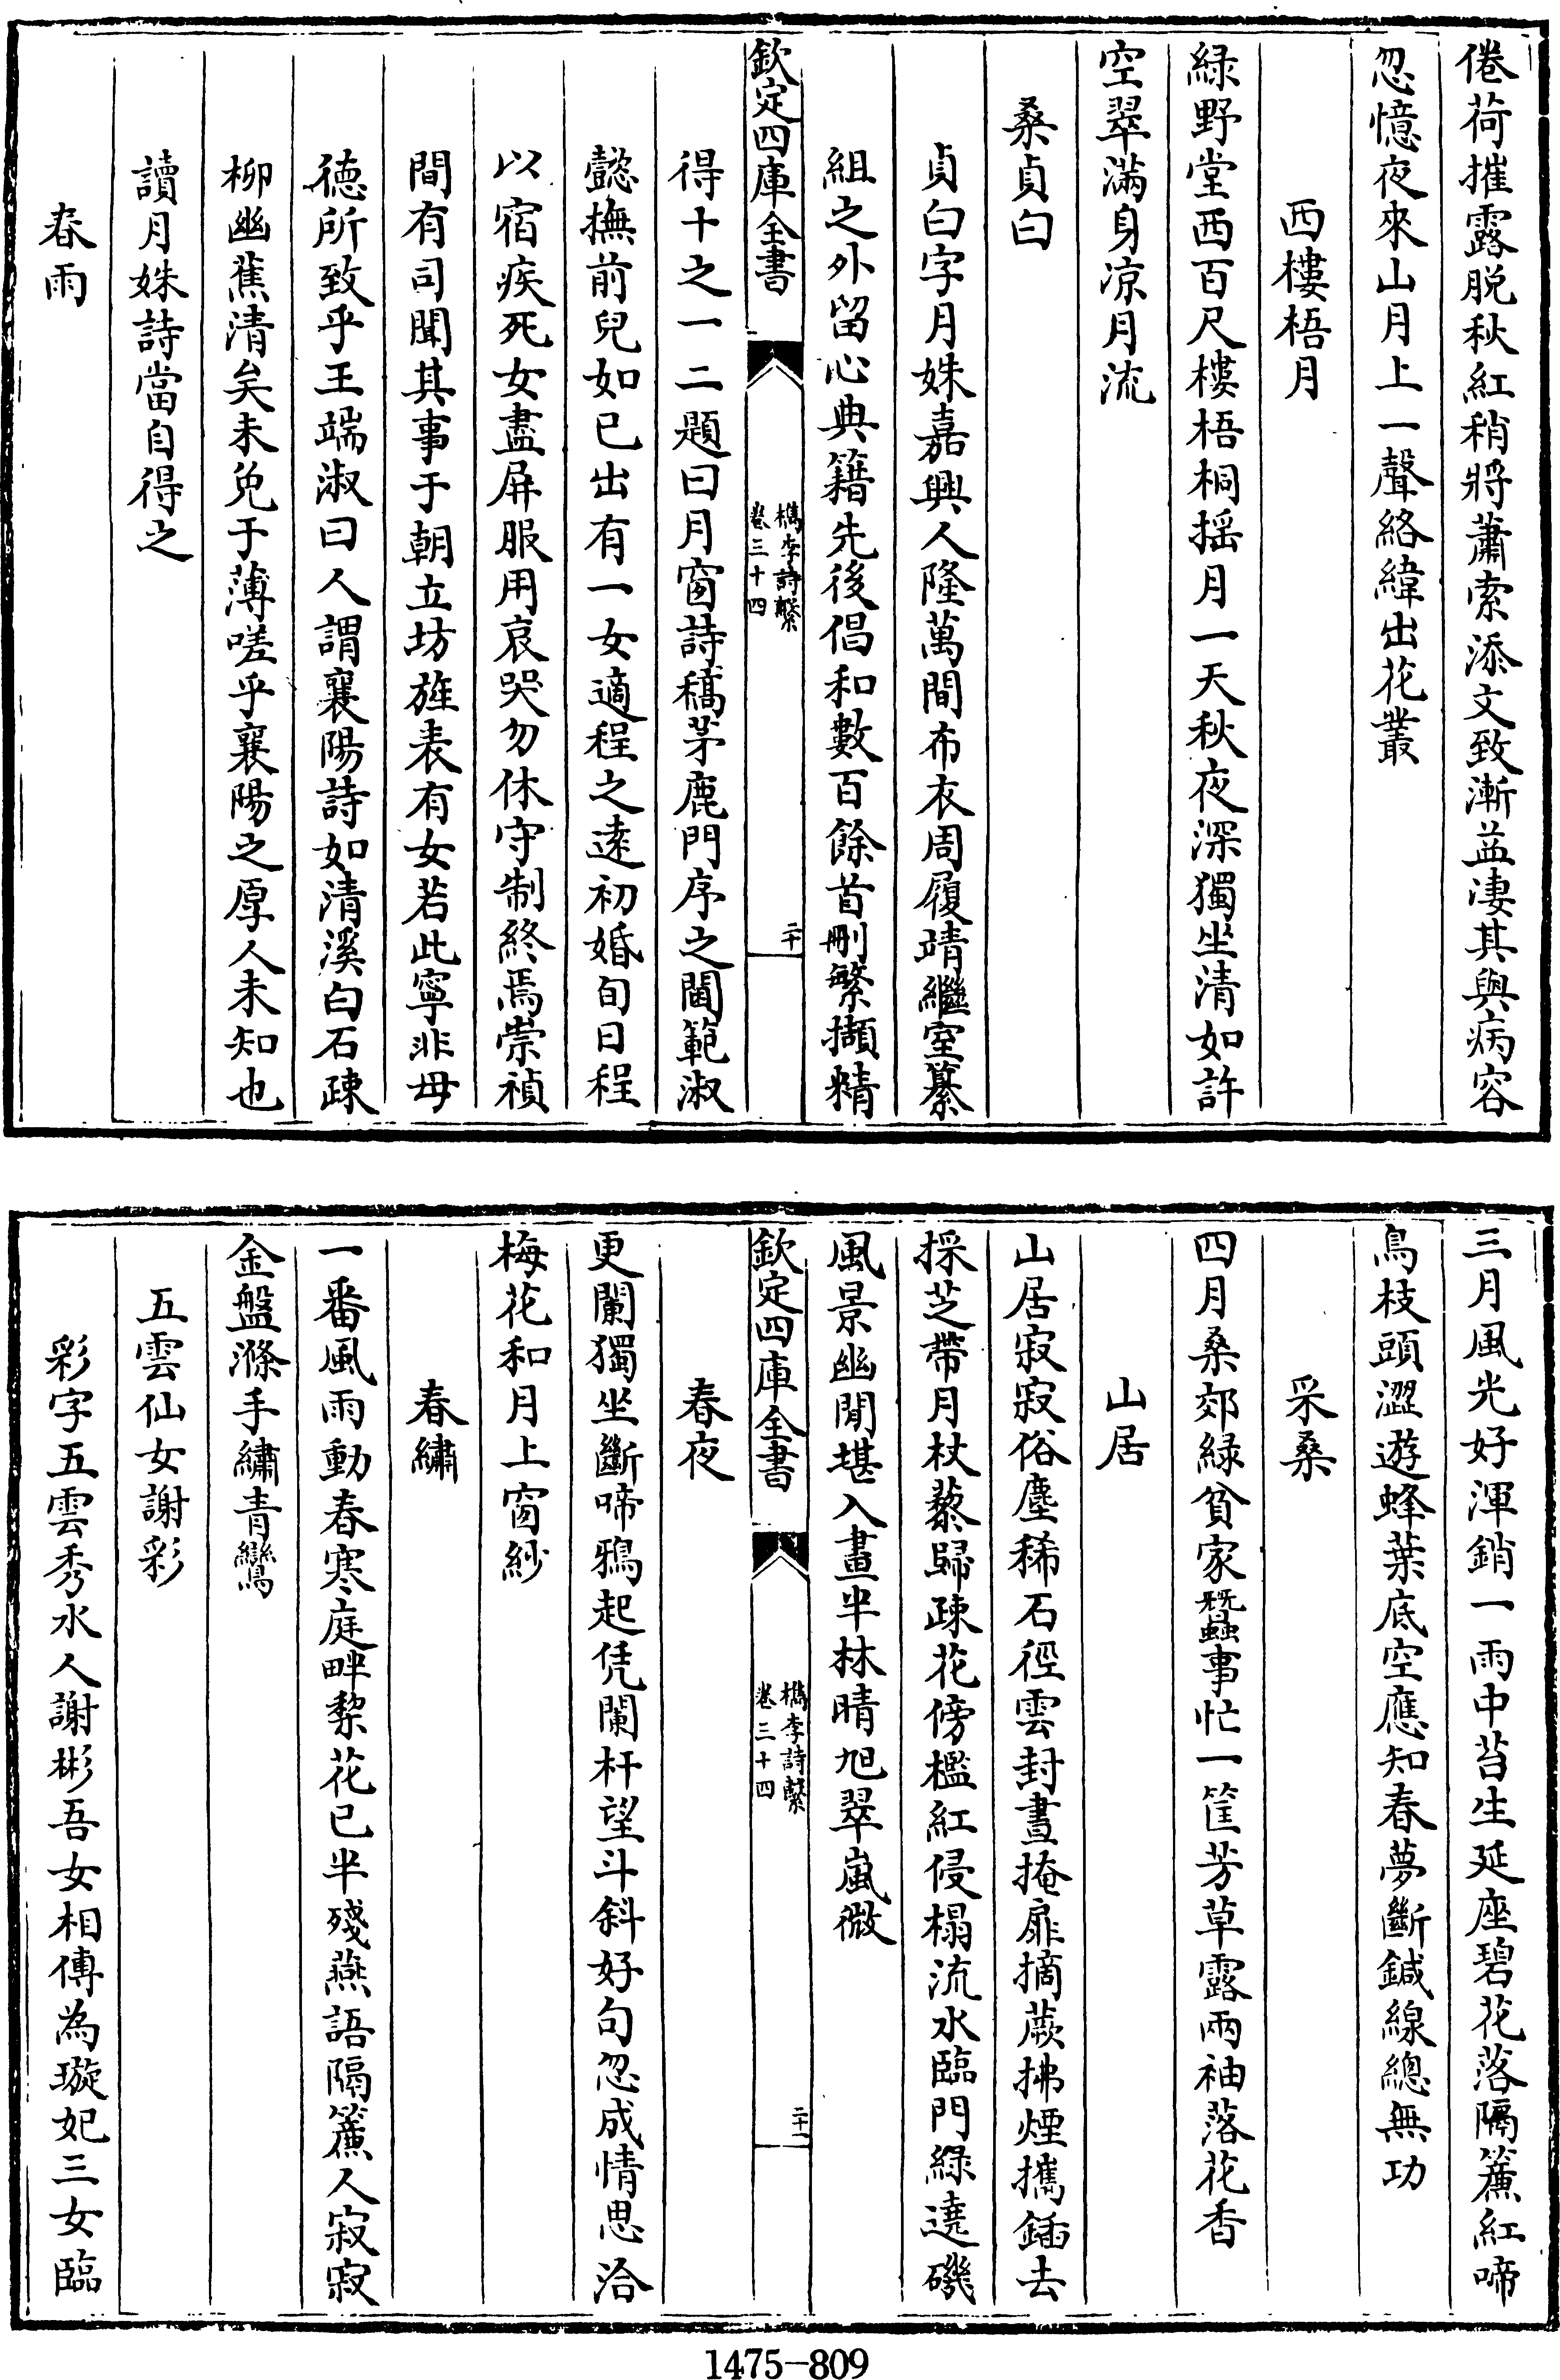 倦荷摧露脱秋紅稍將蕭索添文致漸益凄其與病容
忽憶夜來山月上一聲絡緯出花叢
西樓梧月
緑野堂西百尺樓梧桐揺月一天秋夜深獨坐清如許
空翠滿身凉月流
桑貞白
貞白字月姝嘉興人隆萬間布衣周履靖繼室纂
組之外留心典籍先後倡和數百餘首刪繁擷精
欽定四庫全書
檇李詩繫
卷三十四
二十
得十之一二題曰月窗詩稿茅鹿門序之閫範淑
懿撫前兒如已出有一女適程之逺初婚旬日程
以宿疾死女盡屏服用哀哭勿休守制終焉崇禎
間有司聞其事于朝立坊旌表有女若此寧非母
德所致乎王端淑曰人謂襄陽詩如清溪白石疎
柳幽蕉清矣未免于薄嗟乎襄陽之厚人未知也
讀月姝詩當自得之
春雨
三月風光好渾銷一雨中苔生延座碧花落隔簾紅啼
鳥枝頭澀遊蜂葉底空應知春夢斷鍼線總無功
采桑
四月桑郊緑貧家蠶事忙一筐芳草露兩袖落花香
山居
山居寂寂俗塵稀石徑雲封晝掩扉摘蕨拂煙攜鍤去
採芝帶月杖藜歸疎花傍檻紅侵榻流水臨門綠遶磯
風景幽閒堪入畫半林晴旭翠嵐微
欽定四庫全書
檇李詩繫
卷三十四
二十一
春夜
更闌獨坐斷啼鴉起凭闌杆望斗斜好句忽成情思洽
梅花和月上窗紗
春繡
一番風雨動春寒庭畔棃花已半殘燕語隔簾人寂寂
金盤滌手繡青鸞
五雲仙女謝彩
彩字五雲秀水人謝彬吾女相傳為璇妃三女臨
1475-809